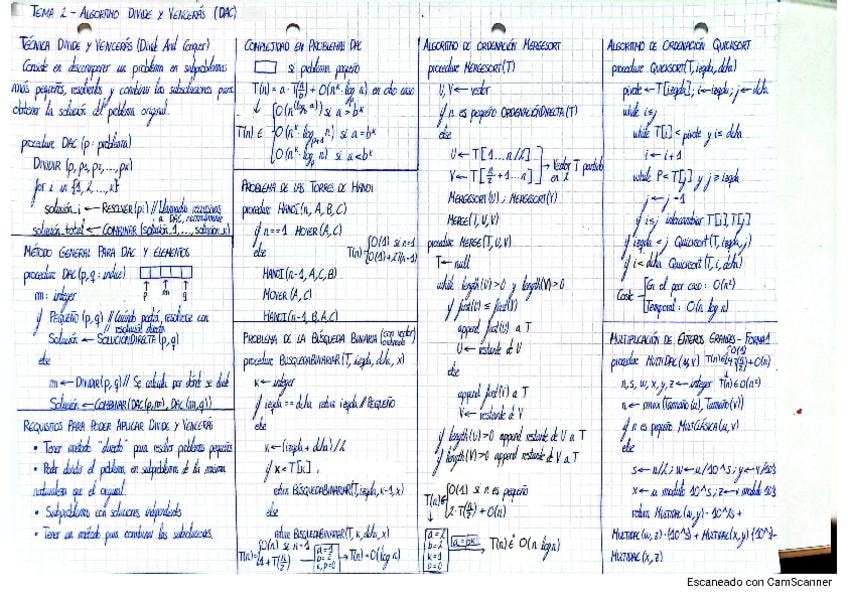 TEMA 2 - ALGORITMO DIVIDE Y VENCERÁS (DAC)
TÉCNICA DIVIDE Y VENCERÁS (Divide And Conquer)
Consiste en descomponer un problema en subproblemas
más pequeños, resolverlos y combinar las subsoluciones para
obtener la solución del problema original.
procedure DAC (p: problema)
DIVIDIR (p, p1, p2, ..., pk)
for i in {1, 2, ..., k}
solución_i ← RESOLVER(pi) // Llamada recursiva
a DAC, normalmente
solución_total ← COMBINAR (solución_1, ..., solución_k)
MÉTODO GENERAL PARA DAC Y ELEMENTOS
procedure DAC (p, q : índice)
p m q
m : integer
if PEQUEÑO (p, q) // Cuando podrá resolverse con
Solución ← SOLUCIÓNDIRECTA (p, q)
else
m ← DIVIDIR (p, q) // Se calcula por dónde se divide
Solución ← COMBINAR (DAC(p,m), DAC(m,q))
REQUISITOS PARA PODER APLICAR DIVIDE Y VENCERÁS
• Tener método "directo" para resolver problemas pequeños
• Poder dividir el problema en subproblemas de la misma
naturaleza que el original.
• Subproblemas con soluciones independientes
• Tener un método para combinar las subsoluciones.
COMPLEJIDAD EN PROBLEMAS DAC
si problema pequeño
T(n) = a · T(n/b) + O(n^k · log n) en otro caso
T(n) ∈
si a > b^k
si a = b^k
si a < b^k
PROBLEMA DE LAS TORRES DE HANOI
procedure HANOI (n, A, B, C)
if n == 1 MOVER (A, C)
else
T(n) O(1) si n=1
O(1) + 2T(n-1)
HANOI (n-1, A, C, B)
MOVER (A, C)
HANOI (n-1, B, A, C)
PROBLEMA DE LA BÚSQUEDA BINARIA (con vector
ordenado)
procedure BÚSQUEDABINARIA (T, izqda, dcha, x)
k ← integer
if izqda == dcha return izqda // PEQUEÑO
else
k ← (izqda + dcha) / 2
if x < T[k]
return BÚSQUEDABINARIA (T, izqda, k-1, x)
else
return BÚSQUEDABINARIA (T, k, dcha, x)
T(n) = O(n) si n=1
1 + T(n/2)
a=1
b=2
→ T(n) = O(log n)
ALGORITMO DE ORDENACIÓN MERGESORT
procedure MERGESORT (T)
U, V ← vector
if n es pequeño ORDENACIÓNDIRECTA (T)
else
U ← T[1 ... n/2]
V ← T[n/2 + 1 ... n]
→ Vector T partido
en 2
MERGESORT (U) ; MERGESORT (V)
MERGE (T, U, V)
procedure MERGE (T, U, V)
T ← null
while length(U) > 0 y length(V) > 0
if first(U) ≤ first(V)
append first(U) a T
U ← restante de U
else
append first(V) a T
V ← restante de V
if length(U) > 0 append restante de U a T
if length(V) > 0 append restante de V a T
T(n) = O(1) si n es pequeño
2 · T(n/2) + O(n)
a=2
b=2
k=1
p=0
a = b^k → T(n) ∈ O(n log n)
ALGORITMO DE ORDENACIÓN QUICKSORT
procedure QUICKSORT (T, izqda, dcha)
pivote ← T[izqda] ; i ← izqda ; j ← dcha
while i ≤ j
while T[i] < pivote y i ≤ dcha
i ← i + 1
while P < T[j] y j ≥ izqda
j ← j - 1
if i ≤ j intercambiar T[i], T[j]
if izqda < j QUICKSORT (T, izqda, j)
if i < dcha QUICKSORT (T, i, dcha)
Coste En el peor caso : O(n²)
Temporal : O(n log n)
MULTIPLICACIÓN DE ENTEROS GRANDES - FORMA 1
procedure MULTIDAC (u, v) T(n) O(1)
4T(n/2) + O(n)
n, s, w, x, y, z ← integer
T(n) ∈ O(n²)
n ← max (Tamaño(u), Tamaño(v))
if n es pequeño MULTCLÁSICA (u, v)
else
s ← n/2 ; w ← u/10^s ; y ← v/10^s
x ← u modulo 10^s ; z ← v modulo 10^s
return MULTIDAC (w, y) · 10^2s +
MULTIDAC (w, z) · (10^s) + MULTIDAC (x, y) (10^s) +
MULTIDAC (x, z)
Escaneado con CamScanner